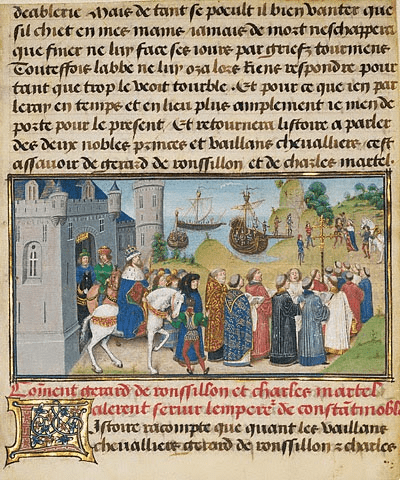 deablerie / Mais de tant se poeult il bien vanter que
sil chiet en mes mains iamais de mort neschappera
que finer ne luy face ses iours par griefz tourmens
Touteffois labbe ne luy oza lors riens respondre pour
tant que trop le veoit tourble · Et pour ce que ien par
leray en temps et en lieu plus amplement ie men de
porte pour le present / Et retournera listoire a parler
des deux nobles princes et vaillans chevalliers · cest
assavoir de gerard de roussillon et de charles martel ·
Comment gerard de roussillon et charles martel
alerent servir lemperer de constātinoble
Listoire racompte que quant les vaillans
chevalliers gerard de roussillon ⁊ charles